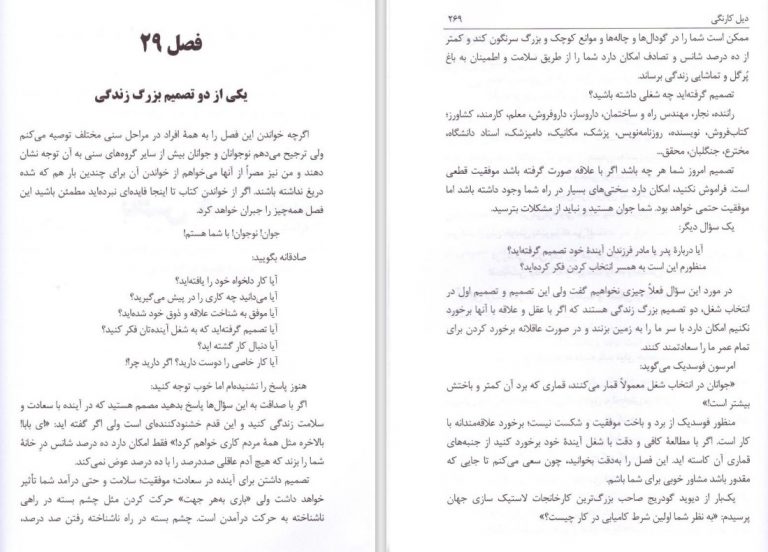 فصل ۲۹
یکی از دو تصمیم بزرگ زندگی
اگرچه خواندن این فصل را به همهٔ افراد در مراحل سنی مختلف توصیه می‌کنم
ولی ترجیح می‌دهم نوجوانان و جوانان بیش از سایر گروه‌های سنی به آن توجه نشان
دهند و من نیز مصراً از آنها می‌خواهم از خواندن آن برای چندین بار هم که شده
دریغ نداشته باشند. اگر از خواندن کتاب تا اینجا فایده‌ای نبرده‌اید مطمئن باشید این
فصل همه‌چیز را جبران خواهد کرد.
جوان! نوجوان! با شما هستم!
صادقانه بگویید:
آیا کار دلخواه خود را یافته‌اید؟
آیا می‌دانید چه کاری را در پیش می‌گیرید؟
آیا موفق به شناخت علاقه و ذوق خود شده‌اید؟
آیا تصمیم گرفته‌اید که به شغل آینده‌تان فکر کنید؟
آیا دنبال کار گشته اید؟
آیا کار خاصی را دوست دارید؟ اگر دارید چرا؟!
هنوز پاسخ را نشنیده‌ام اما خوب توجه کنید:
اگر با صداقت به این سؤال‌ها پاسخ بدهید مصمم هستید که در آینده با سعادت و
سلامت زندگی کنید و این قدم خشنودکننده‌ای است ولی اگر گفته اید: «ای بابا!
بالاخره مثل همهٔ مردم کاری خواهم کرد!» فقط امکان دارد ده درصد شانس در خانهٔ
شما را بزند که هیچ آدم عاقلی صددرصد را با ده درصد عوض نمی‌کند.
تصمیم داشتن برای آینده در سعادت؛ موفقیت؛ سلامت و حتی درآمد شما تأثیر
خواهد داشت ولی «باری به‌هر جهت» حرکت کردن مثل چشم بسته در راهی
ناشناخته به حرکت درآمدن است. چشم بسته در راه ناشناخته رفتن صد درصد،
دیل کارنگی ۲۶۹
ممکن است شما را در گودال‌ها و چاله‌ها و موانع کوچک و بزرگ سرنگون کند و کمتر
از ده درصد شانس و تصادف امکان دارد شما را از طریق سلامت و اطمینان به باغ
پُرگل و تماشایی زندگی برساند.
تصمیم گرفته‌اید چه شغلی داشته باشید؟
راننده، نجار، مهندس راه و ساختمان، داروساز، داروفروش، معلم، کارمند، کشاورز؛
کتاب‌فروش، نویسنده، روزنامه‌نویس، پزشک، مکانیک، دامپزشک، استاد دانشگاه،
مخترع، جنگلبان، محقق...
تصمیم امروز شما هر چه باشد اگر با علاقه صورت گرفته باشد موفقیت قطعی
است. فراموش نکنید، امکان دارد سختی‌های بسیار در راه شما وجود داشته باشد اما
موفقیت حتمی خواهد بود. شما جوان هستید و نباید از مشکلات بترسید.
یک سؤال دیگر:
آیا دربارهٔ پدر یا مادر فرزندان آیندهٔ خود تصمیم گرفته‌اید؟
منظورم این است به همسر انتخاب کردن فکر کرده‌اید؟
در مورد این سؤال فعلاً چیزی نخواهیم گفت ولی این تصمیم و تصمیم اول در
انتخاب شغل، دو تصمیم بزرگ زندگی هستند که اگر با عقل و علاقه با آنها برخورد
نکنیم امکان دارد با سر ما را به زمین بزنند و در صورت عاقلانه برخورد کردن برای
تمام عمر ما را سعادتمند کنند.
امرسون فوسدیک می‌گوید:
«جوانان در انتخاب شغل معمولاً قمار می‌کنند، قماری که برد آن کمتر و باختش
بیشتر است!»
منظور فوسدیک از برد و باخت موفقیت و شکست نیست؛ برخورد علاقه‌مندانه با
کار است. اگر با مطالعهٔ کافی و دقت با شغل آیندهٔ خود برخورد کنید از جنبه‌های
قماری آن کاسته اید. این فصل را به‌دقت بخوانید، چون سعی می‌کنم تا جایی که
مقدور باشد مشاور خوبی برای شما باشم.
یک‌بار از دیوید گودریج صاحب بزرگ‌ترین کارخانجات لاستیک سازی جهان
پرسیدم: «به نظر شما اولین شرط کامیابی در کار چیست؟»